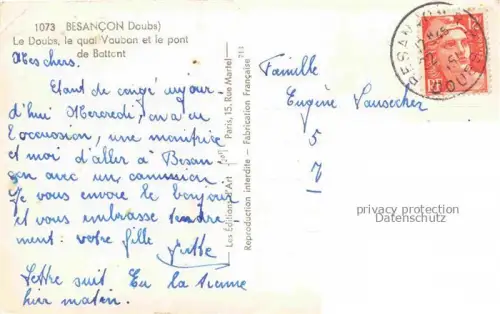 1073 BESANÇON Doubs)
Le Doubs, le quai Vauban et le pont
de Battant
Mes chers.
Etant de congé aujour-
d'hui Mercredi, on a eu
l'occassion, une monitrice
et moi d'aller à Besan
çon avec un cammion.
Je vous envoie le bonjour
et vous embrasse tendre
ment: votre fille
Lettre suit. Eu la tienne
hier matin.
Les Editions d'Art Paris, 15, Rue Martel
Reproduction interdite - Fabrication Française
Famille
Eugène Vauscher
5
7
BESAN
privacy protection
Datenschutz